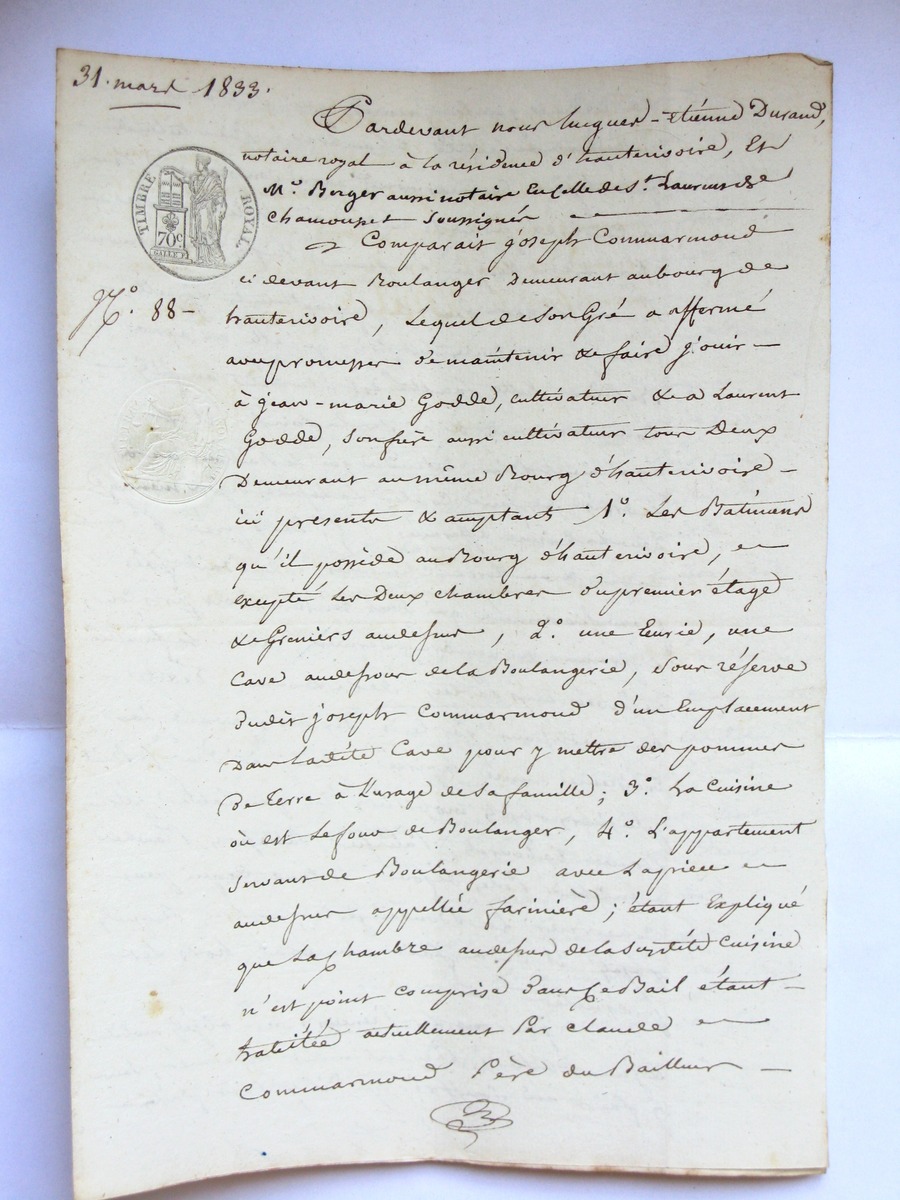 31. mars 1833.
Pardevant nous Jacques-Etiénne Durand,
notaire royal à la résidence d'hauterivoire, Et
Mᵉ. Berger aussi notaire En celle de St. Laurent de
Chamousset Soussignés
Comparait joseph Commarmond
ci devant Boulanger Demeurant au bourg de
hauterivoire, Lequel de Son Gré a affermé
avec promesses de maintenir & faire jouir
à jean-marie Godde, cultivateur & a Laurent
Godde, Son frère aussi cultivateur tous Deux
Demeurant au même Bourg d'hauterivoire
ici presents & acceptants 1°. Les Batimens
qu'il possède au Bourg d'hauterivoire,
excepté Les Deux chambres du premier étage
& Greniers audessus, 2°. une Ecurie, une
Cave audessous de la Boulangerie, Sous réserve
Dudit joseph Commarmond d'un Emplacement
Dans Ladité Cave pour y mettre des pommes
De Terre à L'usage de Sa famille; 3°. La Cuisine
où est Le four de Boulanger, 4°. L'appartement
Servant de Boulangerie avec La pièce
audessus appellée farinière; étant Expliqué
que La chambre audessus de la Susdité Cuisine
n'est point Comprise Dans Ce Bail étant
habitée actuellement Par claude
Commarmond Père du Bailleur
TIMBRE ROYAL
70c
N° 88